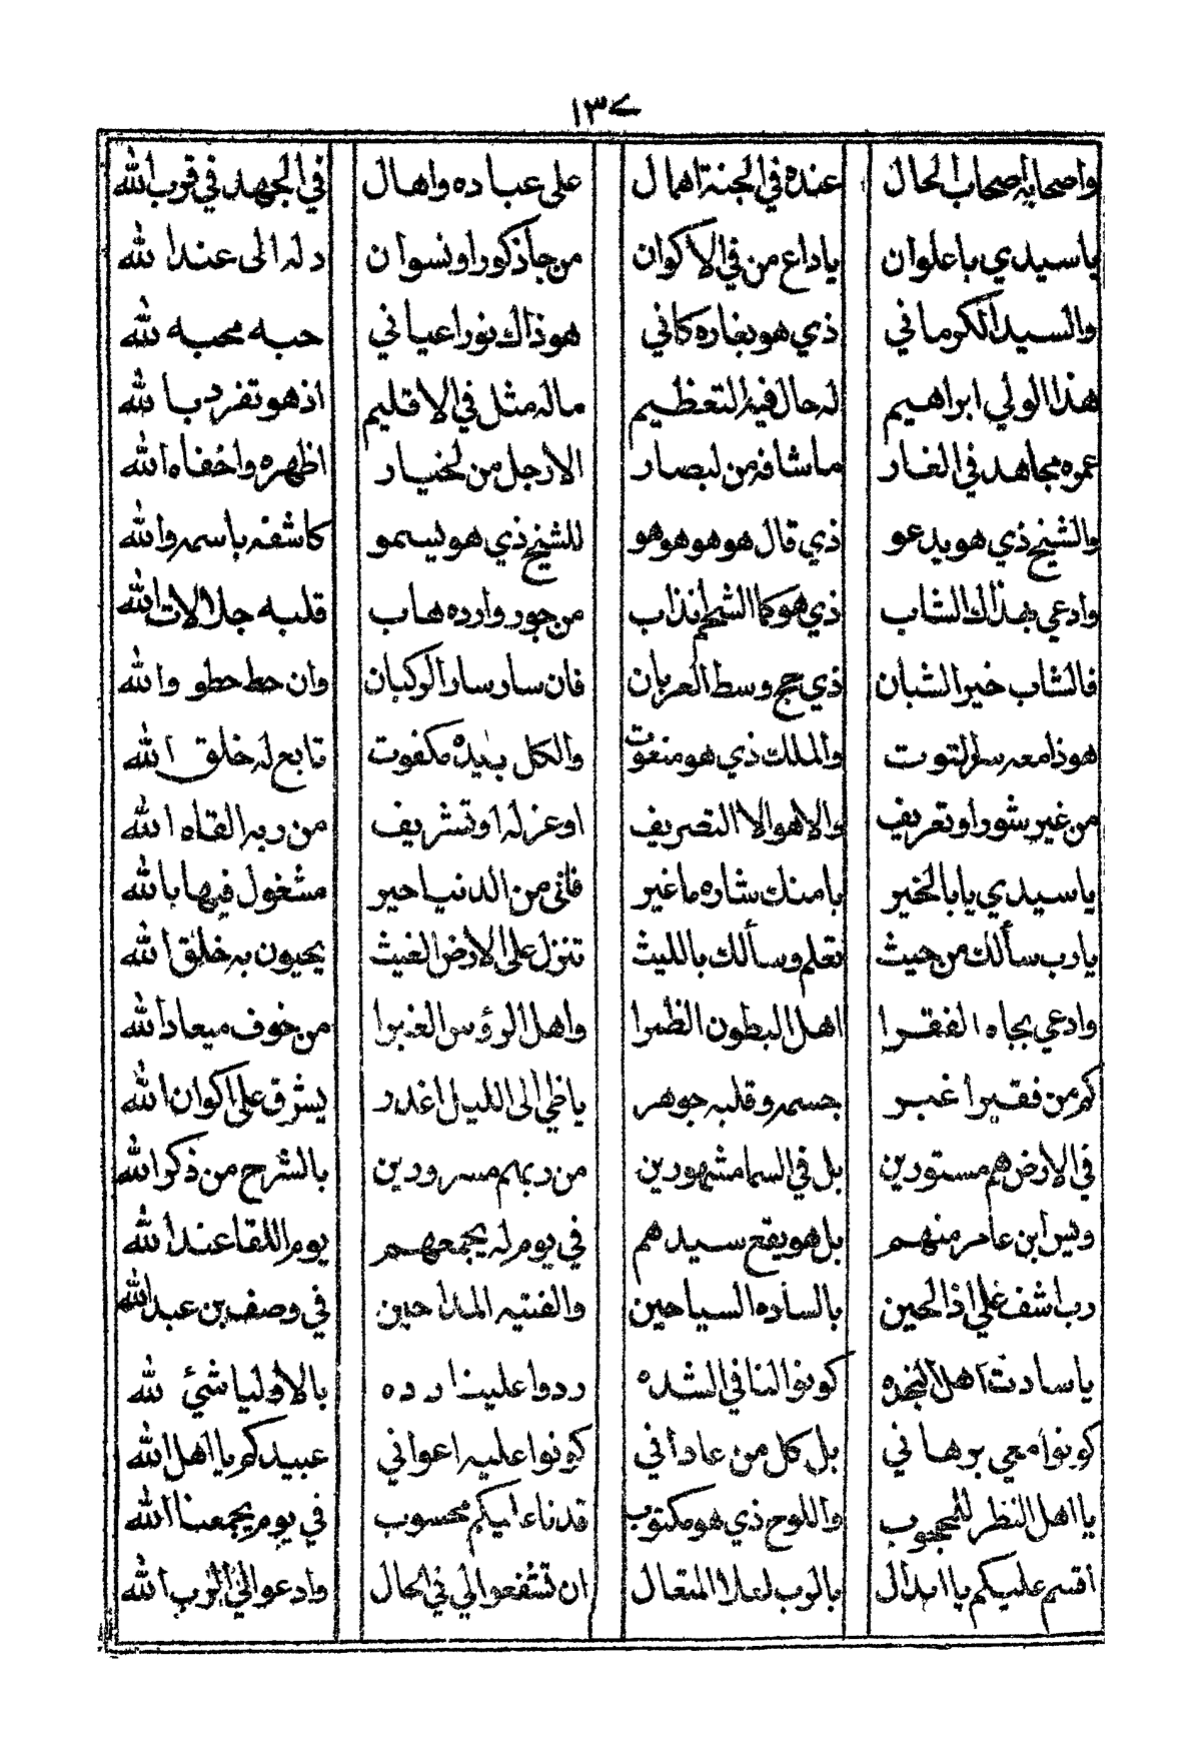 ١٣٧
واصحابه اصحاب الحال عنده في الجنة اهمال على عباده واهال في الجهد في قرب الله
ياسيدي باعلوان ياداع من في الاكوان من جا ذكورا ونسوان دله الى عند الله
والسيد الكرماني ذي هو بغاره كاني هو ذاك نور اعياني حبه محبه لله
هذا الولي ابراهيم له حال فيه التعظيم ماله مثل في الاقليم اذ هو تفرد بالله
عمره مجاهد في الغار ماشافه من لبصار الارجل من لخيار اظهره واخفاه الله
والشيخ ذي هو يدعو ذي قال هو هو هو هو للشيخ ذي هو يسمو كاشفه باسم والله
وادعي بهذاك الشاب ذي هو كما الشحم انذاب من جور وارده هاب قلبه جلالات الله
فالشاب خير الشبان ذي حج وسط العربان فان سار سار الركبان وان حط حطو والله
هوذا معه سر لتوت والملك ذي هو منعوت والكل بيده مكفوت تابع له خلق الله
من غير شور او تعريف والا هو الا التصريف او عزله او تشريف من ربه القاه الله
ياسيدي يابا الخير بامنك شاره ماغير فاني من الدنيا حير مشغول فيها بالله
يارب سألك من حيث تعلم وسألك بالليث تنزل على الارض الغيث يحيون به خلق الله
وادعي بجاه الفقرا اهل البطون الظمرا واهل الرؤوس الغبرا من خوف ميعاد الله
كم من فقير اغبر جسمه وقلبه جوهر ياظي الى الليل اغدر يشرق على اكوان الله
في الارض هم مستورين بل في السما مشهورين من ربهم مسرورين بالشرح من ذكر الله
وليس ابن عامر منهم بل هو يقع سيدهم في يوم له يجمعهم يوم اللقا عند الله
رب اشف علي اذا الحين بالساده السياحين والفتيه المداحين في وصف بن عبد الله
ياسادت اهل النجده كونوا لنا في الشده ردوا علينا رده بالاوليا شئ لله
كونوا معي برهاني بل كل من عاداني كونوا عليه اعواني عبيدكم يا اهل الله
يا اهل النظر للمحجوب واللوح ذي هو مكتوب قدنا ء ليكم محسوب في يوم يجمعنا الله
اقسم عليكم يا ابدال بالرب لعلا المتعال ان تشفعوا لي في الحال وادعوا لي الرب الله